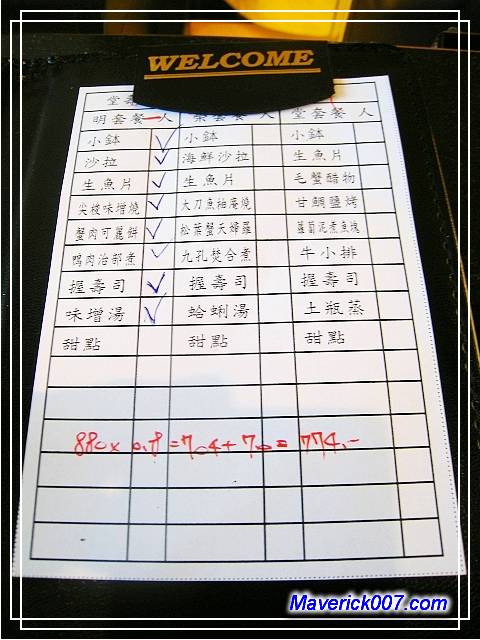 WELCOME
堂壽
明套餐 一人 榮套餐 人 堂套餐 人
小鉢 ✓ 小鉢 小鉢
沙拉 海鮮沙拉 生魚片
生魚片 ✓ 生魚片 毛蟹醋物
尖梭味增燒 ✓ 太刀魚柚庵燒 甘鯛鹽烤
蟹肉可麗餅 ✓ 松葉蟹天婦羅 蘿蔔泥煮魚塊
鴨肉治部煮 ✓ 九孔焚合煮 牛小排
握壽司 ✓ 握壽司 握壽司
味增湯 ✓ 蛤蜊湯 土瓶蒸
甜點 甜點 甜點
880x 0.8 = 704 + 70 = 774.-
Maverick007.com